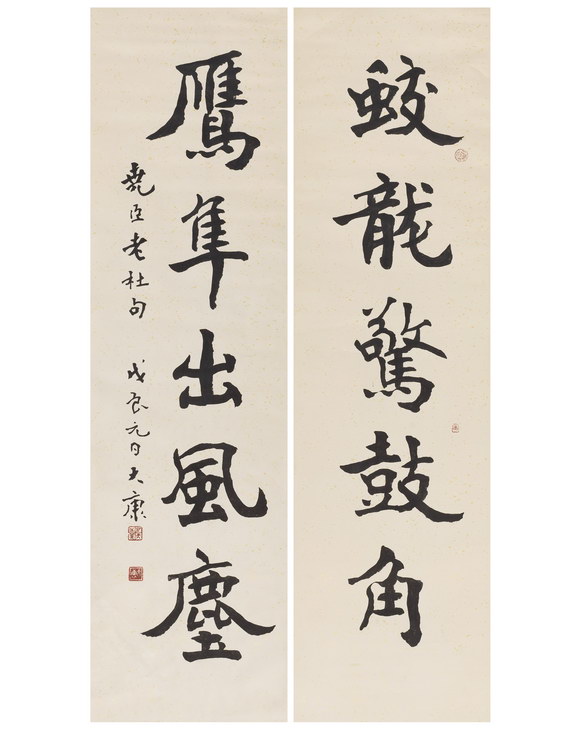 蛟龍驚鼓角
鷹隼出風塵
堯臣老杜句
戊辰元日大康